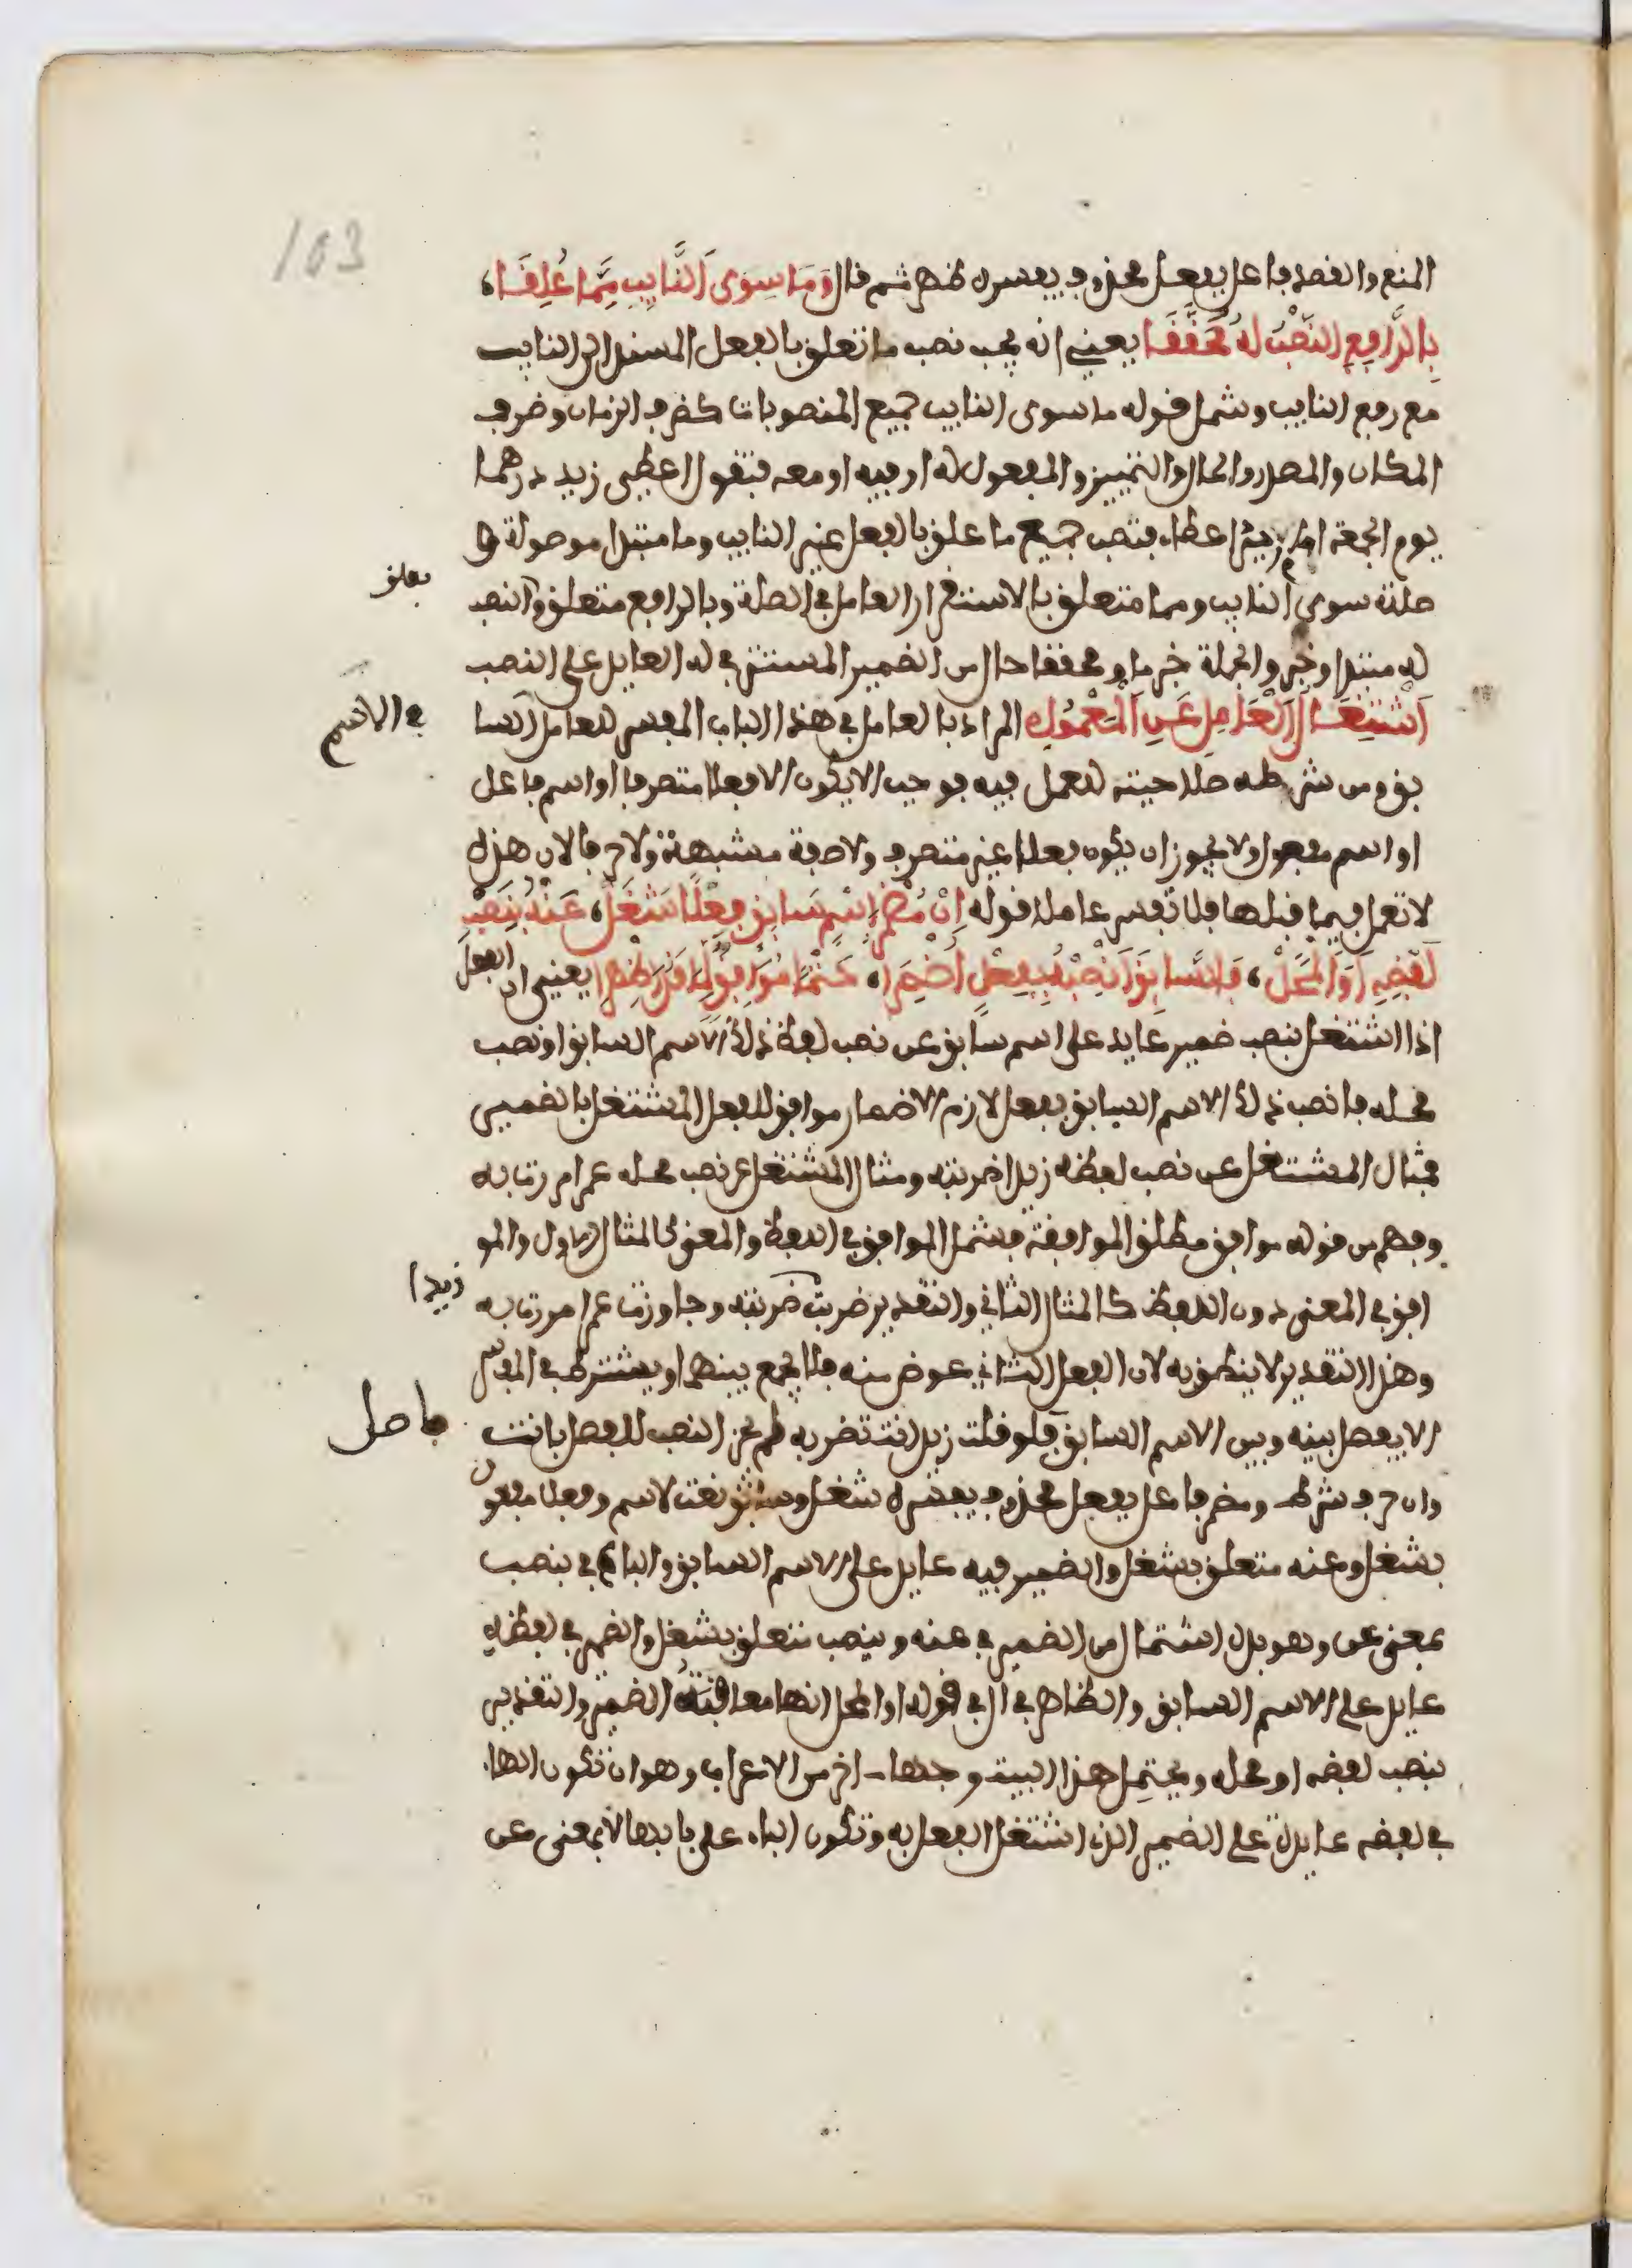 103
المنع والقصد فاعل بفعل محذوف يفسره ظهر ثم قال وَمَا سِوَى النَّايِبِ مِمَّا عُلِّقَا
بِالرَّافِعِ النَّصْبُ لَهُ مُحَقَّقَا يعني انه يجب نصب ما تعلق بالفعل المسند الى النايب
مع رفع النايب وشمل قوله ما سوى النايب جميع المنصوبات كضرف الزمان وضرف
المكان والمصدر والحال والتمييز والمفعول له او فيه او معه فتقول اعطي زيد درهما
يوم الجمعة امام اعطاء فتصب جميع ما علق بالفعل غير النايب وما مبتدا موصولة و
صلته سوى النايب ومما متعلق بالاستقرار العامل في الصلة وبالرافع متعلق والنصب
بعلق
له مبتدا وخبر والجملة خبر ما ومحققا حال من الضمير المستتر في له العايد على النصب
اشْتِغَالُ الْعَامِلِ عَنِ الْمَعْمُولِ المراد بالعامل في هذا الباب المفسر للعامل السا
في الاسم
بق ومن شرطه صلاحيته للعمل فيه فوجب الا يكون الا فعلا متصرفا او اسم فاعل
او اسم مفعول ولا يجوز ان يكون فعلا غير متصرف ولا صفة مشبهة ولا حرفا لان هذه
لا تعمل فيما قبلها فلا تفسر عاملا قوله اِنْ مُضْمَرُ اسْمٍ سَابِقٍ فِعْلًا شَغَلْ عَنْهُ بِنَصْبِ
لَفْظِهِ أَوِ الْمَحَلْ فَالسَّابِقَ انْصِبْهُ بِفِعْلٍ أُضْمِرَا حَتْمًا مُوَافِقٍ لِمَا قَدْ اظْهِرَا يعني ان الفعل
اذا اشتغل بنصب ضمير عايد على اسم سابق عن نصب لفظ ذلك الاسم السابق او نصب
محله فانصب ذلك الاسم السابق بفعل لازم الاضمار موافق للفعل المشتغل بالضمير
فمثال المشتغل عن نصب لفظه زيدا ضربته ومثال المشتغل عن نصب محله عمرا مررت به
وفهم من قوله موافق مطلق الموافقة فشمل الموافق في اللفظ والمعنى كالمثال الاول والمو
افق في المعنى دون اللفظ كالمثال الثاني والتقدير ضربت ضربته وجاوزت عمرا مررت به
زيدا
وهذا التقدير لا ينطق به لان الفعل الثاني عوض منه فلا يجمع بينهما ويشترط في المفسر
الا يفصل بينه وبين الاسم السابق فلو قلت زيد انت تضربه لم يجز النصب للفصل بانت
فاصل
وان حرف شرط ومضمر فاعل بفعل محذوف يفسره شغل وسابق نعت لاسم وفعلا مفعول
بشغل وعنه متعلق بشغل والضمير فيه عايد على الاسم السابق والباء في بنصب
بمعنى عن وهو بدل اشتمال من الضمير في عنه وبنصب متعلق بشغل والضمير في لفظه
عايد على الاسم السابق والظاهر في ال في قوله او المحل انها معاقبة الضمير والتقدير
بنصب لفظه او محله ويحتمل هذا البيت وجها اخر من الاعراب وهو ان تكون الهاء
في لفظه عايدة على الضمير الذي اشتغل الفعل به وتكون الباء على بابها لا بمعنى عن